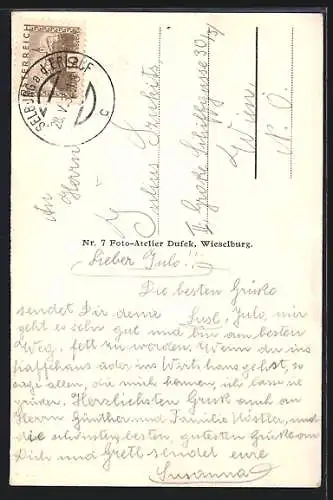 ÖSTERREICH
SELBURG a. d. ERLAUF
28. V.
c
An
Herrn
Julius
II Große Schiffgasse 30/
Wien
N. Ö.
Nr. 7 Foto-Atelier Dusek, Wieselburg.
Lieber Julo!!
Die besten Grüße
sendet Dir deine Susl, Julo, mir
geht es sehr gut und bin am besten
Weg, fett zu werden. Wenn du ins
Kaffehaus oder ins Wirtshaus gehst, so
sage allen, die mich kennen, ich lasse sie
grüßen. Herzlichsten Gruß auch an
Herrn Günther und Familie und
die schönsten, besten, gutesten Grüße an
Dich und Gretl sendet eure
Susanna